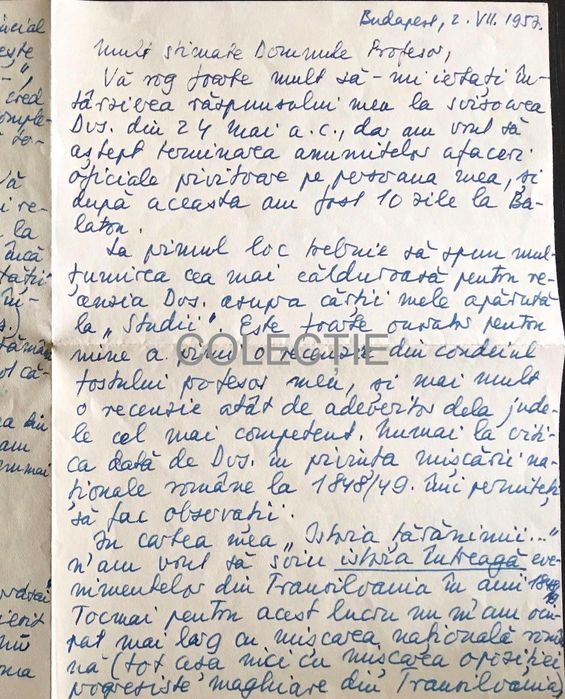 Budapest, 2. VII. 1957.
Mult stimate Domnule Profesor,
Vă rog foarte mult să-mi iertați în-
tărzierea răspunsului meu la scrisoarea
Dvs. din 24 mai a.c., dar am vrut să
aștept terminarea anumitelor afaceri
oficiale privitoare pe persoana mea, și
după aceasta am fost 10 zile la Ba-
laton.
La primul loc trebuie să spun mul-
țumirea cea mai călduroasă pentru re-
cenzia Dvs. asupra cărții mele apărută
la „Studii". Este foarte onorator pentru
mine a primi o recenzie din condeiul
fostului profesor meu, și mai mult
o recenzie atât de adeveritor dela jude-
le cel mai competent. Numai la criti-
ca dată de Dvs. în privința mișcării na-
ționale române la 1848/49. îmi permiteți
să fac observații.
In cartea mea „Istoria țărănimii..."
n'am vrut să scriu istoria întreagă eve-
nimentelor din Transilvania în anii 1848/49.
Tocmai pentru acest lucru nu m'am ocu-
pat mai larg cu mișcarea națională româ-
nă (tot așa nici cu mișcarea opoziției
progresiste maghiare din Transilvania)
COLECȚIE